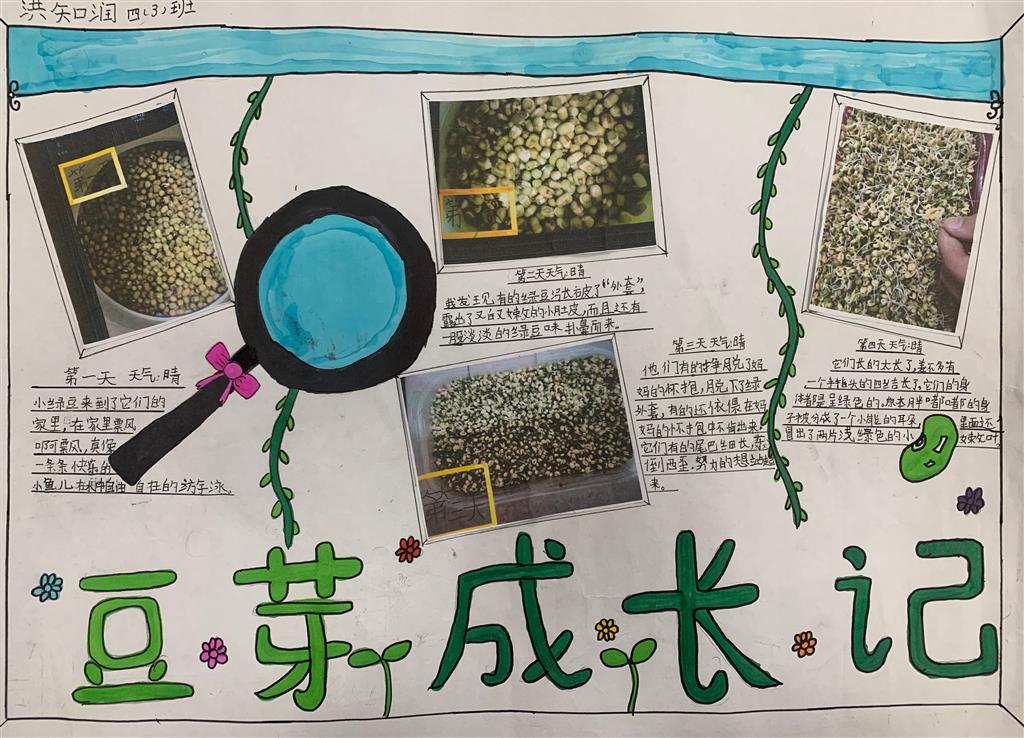 洪知润 四(3)班
第一天 天气:晴
小绿豆来到了它们的
家里,在家里飘呀
啊飘,真像
一条条快乐的
小鱼儿在水中自由自在的游泳。
第二天天气:晴
我发现有的绿豆宝宝脱了“外套”,
露出了又白又嫩的小肚皮,而且还有
一股淡淡的绿豆味扑鼻而来。
第三天 天气:晴
他们有的挣脱了妈
妈的怀抱,脱下绿
外套,有的还依偎在妈
妈的怀中不肯出来。
它们有的尾巴细长,东
倒西歪.努力的想站起
来。
第四天天气:晴
它们长的太长了,差不多有
一个手指头的四分之一长了,它们的身
体都是呈绿色的,原本胖嘟嘟的身
子被分成了一个小小的耳朵,里面还
冒出了两片浅绿色的小嫩叶。
第一
第
第三天
豆芽成长记